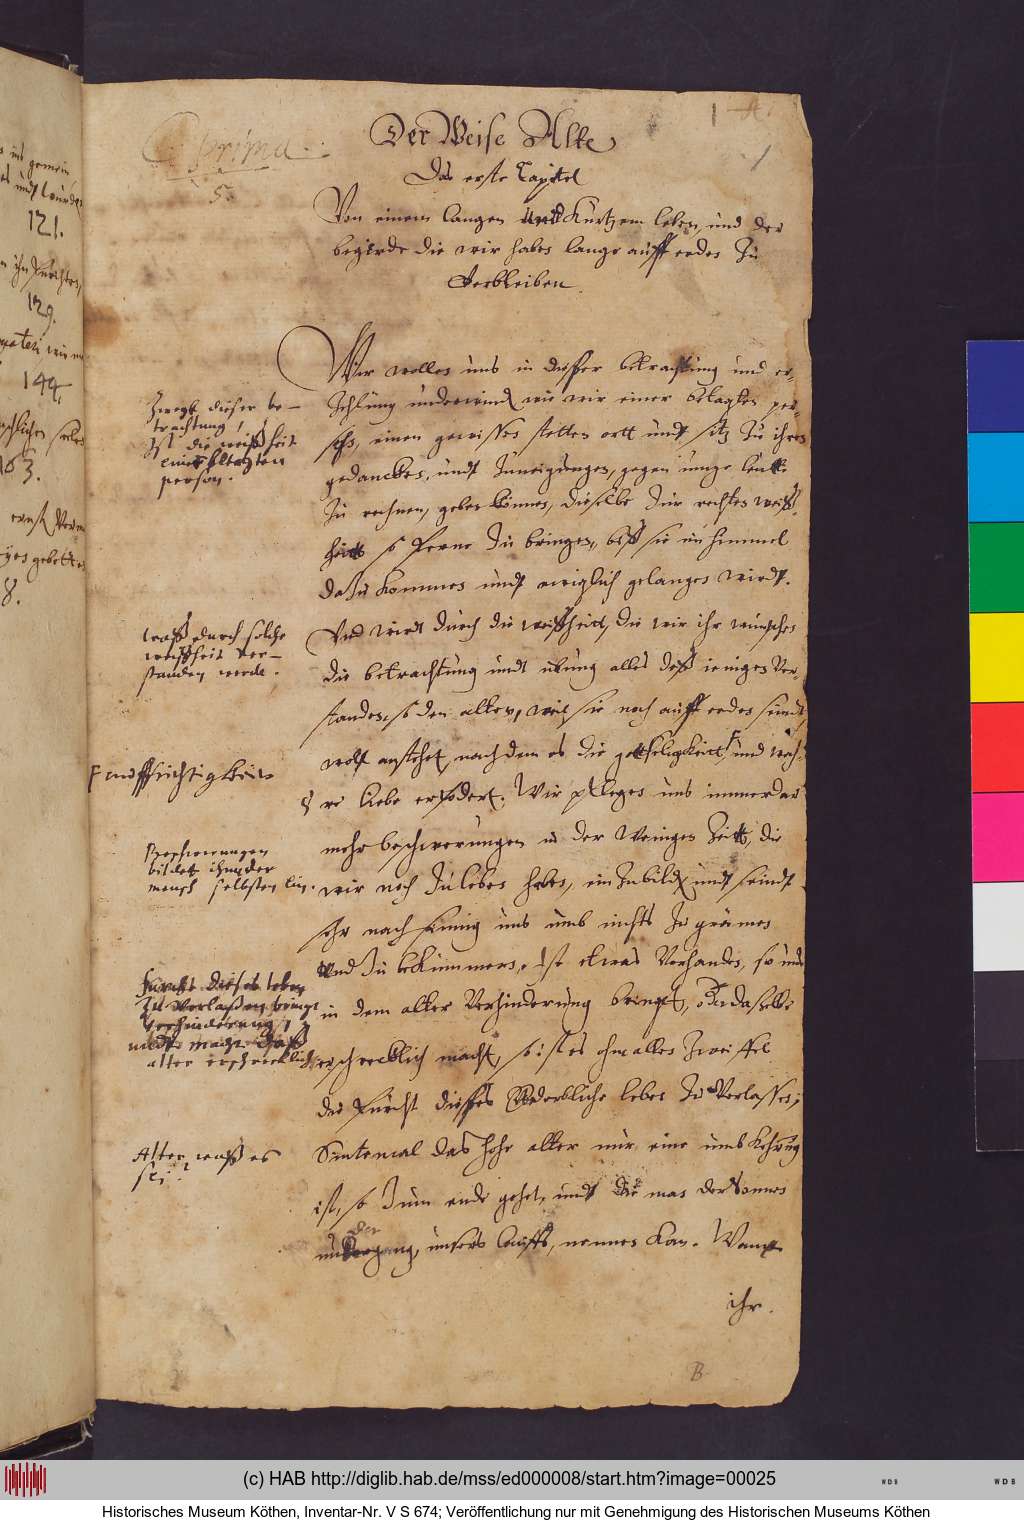 prima
5.
1
Der Weise Alte
Das erste Capitel
Von einem langen undt Kurtzem leben, und der
begirde die wir haben lange auff erden zu
Verbleiben.
Wir wollen uns in dieser betrachtung und er-
zehlung underwinden wie wir einer betagten per-
sohn, einen gewissen stetten ortt undt sitz zu ihren
gedancken, undt zuneigungen, gegen junge leutte
zu rechnen, geben können, dieselbe zur rechten weiß-
heitt so ferne zu bringen, biß sie im himmel
dazu kommen undt ewiglich gelangen wirdt.
Und wirdt durch die weißheitt, die wir ihr wünschen
die betrachtung undt übung alles deß jenigen Ver-
standes, so den alten, weil sie noch auff erden seindt,
wohl anstehet, nach dem es die gottseligkeitt, und wah-
re liebe erfodert. Wir pflegen uns immerdar
mehr beschwerungen in der Weinigen Zeitt, die
wir noch zu leben haben, ein zubilden undt seindt
sehr nach sinnig uns umb nichts zu grämen
und zu bekümmern. Ist etwas Vorhanden, so uns
in dem alter Verhinderung bringet, oder dasselbe
erschrecklich macht, so ist es ohn alles Zweiffel
die furcht dieses Verderbliche leben zu Verlassen;
Sintemal das hohe alter nur eine umbkehrung
ist, so zum ende gehet, undt die man der Sonnen
der
undergang, unsers lauffs, nennen kan. Wann
ihr.
B
Zweck dieser be-
trachtung,
Ist die weißheit
einer betagten
person.
waß durch solche
weißheit ver-
standen werde.
F auffrichtigkeit
Beschwerungen
bildet ihm der
mensch selbsten ein.
Furcht dieses leben
zu verlaßen bringt
verhinderung,
undt macht daß
alter erschrecklich
Alter waß es
sei?
121.
129.
144.
163.
8.
(c) HAB http://diglib.hab.de/mss/ed000008/start.htm?image=00025
WDB
WDB
Historisches Museum Köthen, Inventar-Nr. V S 674; Veröffentlichung nur mit Genehmigung des Historischen Museums Köthen